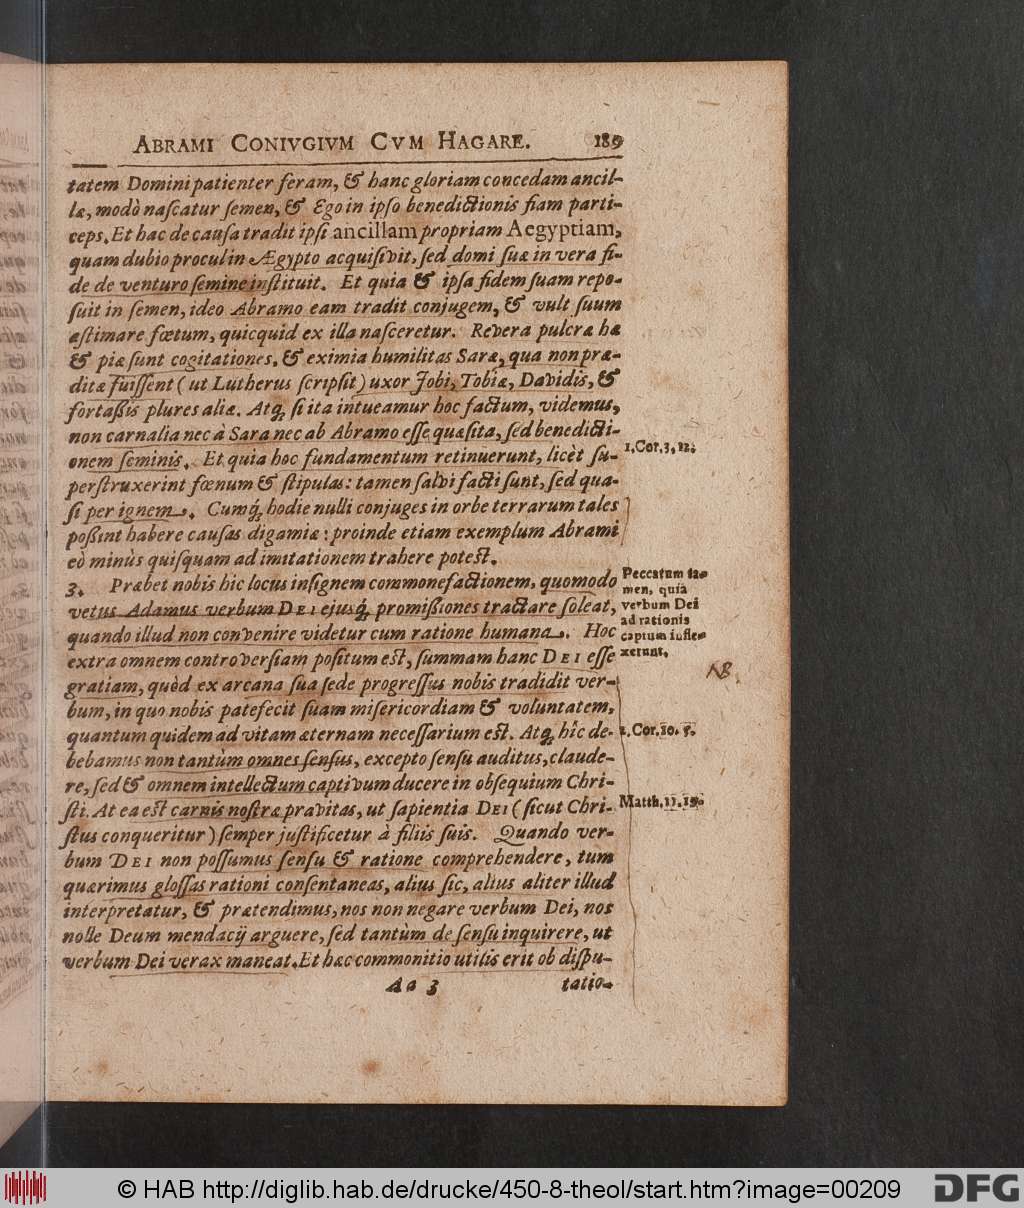 ABRAMI CONIVGIVM CVM HAGARE. 189
tatem Domini patienter feram, & hanc gloriam concedam ancil-
læ, modò naſcatur ſemen, & Ego in ipſo benedictionis fiam parti-
ceps. Et hac de cauſa tradit ipſi ancillam propriam Aegyptiam,
quam dubio procul in Ægypto acquiſivit, ſed domi ſuæ in vera fi-
de de venturo ſemine inſtituit. Et quia & ipſa fidem ſuam repo-
ſuit in ſemen, ideo Abramo eam tradit conjugem, & vult ſuum
æſtimare fœtum, quicquid ex illa naſceretur. Revera pulcræ hæ
& piæ ſunt cogitationes, & eximia humilitas Saræ, qua non præ-
ditæ fuiſſent (ut Lutherus ſcripſit) uxor Jobi, Tobiæ, Davidis, &
fortaßis plures aliæ. Atq́; ſi ita intueamur hoc factum, videmus,
non carnalia nec à Sara nec ab Abramo eſſe quæſita, ſed benedicti-
onem ſeminis. Et quia hoc fundamentum retinuerunt, licèt ſu-
1. Cor. 3, 12.
perſtruxerint fœnum & ſtipulas: tamen ſalvi facti ſunt, ſed qua-
ſi per ignem. Cumq́; hodie nulli conjuges in orbe terrarum tales
poßint habere cauſas digamiæ: proinde etiam exemplum Abrami
eò minùs quiſquam ad imitationem trahere poteſt.
3. Præbet nobis hic locus inſignem commonefactionem, quomodo
vetus Adamus verbum DEI ejusq́; promißiones tractare ſoleat,
quando illud non convenire videtur cum ratione humana. Hoc
Peccatum ta-
men, quia
verbum Dei
ad rationis
captum infle-
xerunt.
extra omnem controverſiam poſitum eſt, ſummam hanc DEI eſſe
gratiam, quòd ex arcana ſua ſede progreſſus nobis tradidit ver-
NB.
bum, in quo nobis patefecit ſuam miſericordiam & voluntatem,
quantum quidem ad vitam æternam neceſſarium eſt. Atq́; hîc de-
2. Cor. 10. 5.
bebamus non tantùm omnes ſenſus, excepto ſenſu auditus, claude-
re, ſed & omnem intellectum captivum ducere in obſequium Chri-
ſti. At ea eſt carnis noſtræ pravitas, ut ſapientia DEI (ſicut Chri-
Matth. 11. 19.
ſtus conqueritur) ſemper juſtificetur à filiis ſuis. Quando ver-
bum DEI non poſſumus ſenſu & ratione comprehendere, tum
quærimus gloſſas rationi conſentaneas, alius ſic, alius aliter illud
interpretatur, & prætendimus, nos non negare verbum Dei, nos
nolle Deum mendacij arguere, ſed tantùm de ſenſu inquirere, ut
verbum Dei verax maneat. Et hæc commonitio utilis erit ob diſpu-
Aa 3 tatio-
© HAB http://diglib.hab.de/drucke/450-8-theol/start.htm?image=00209
DFG